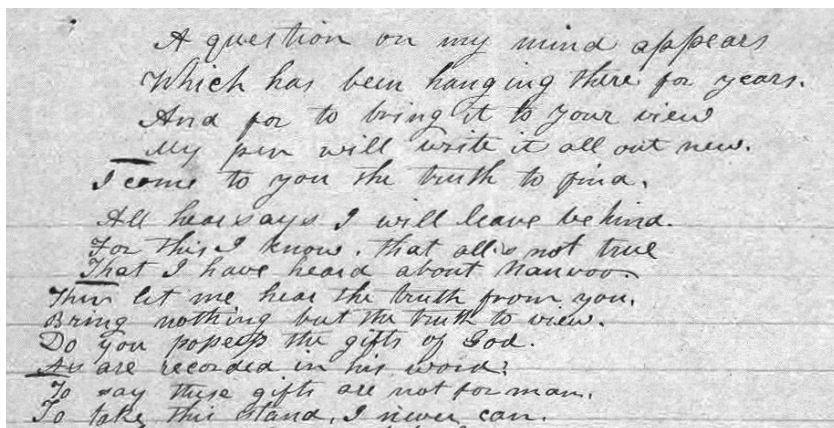 A question on my mind appears
Which has been hanging there for years.
And for to bring it to your view
My pen will write it all out new.
I come to you the truth to find.
All hearsays I will leave behind.
For this I know. that all is not true
That I have heard about Nauvoo.
Then let me hear the truth from you.
Bring nothing but the truth to view.
Do you possess the gifts of God.
As are recorded in his word?
To say these gifts are not for man.
To take this stand, I never can.